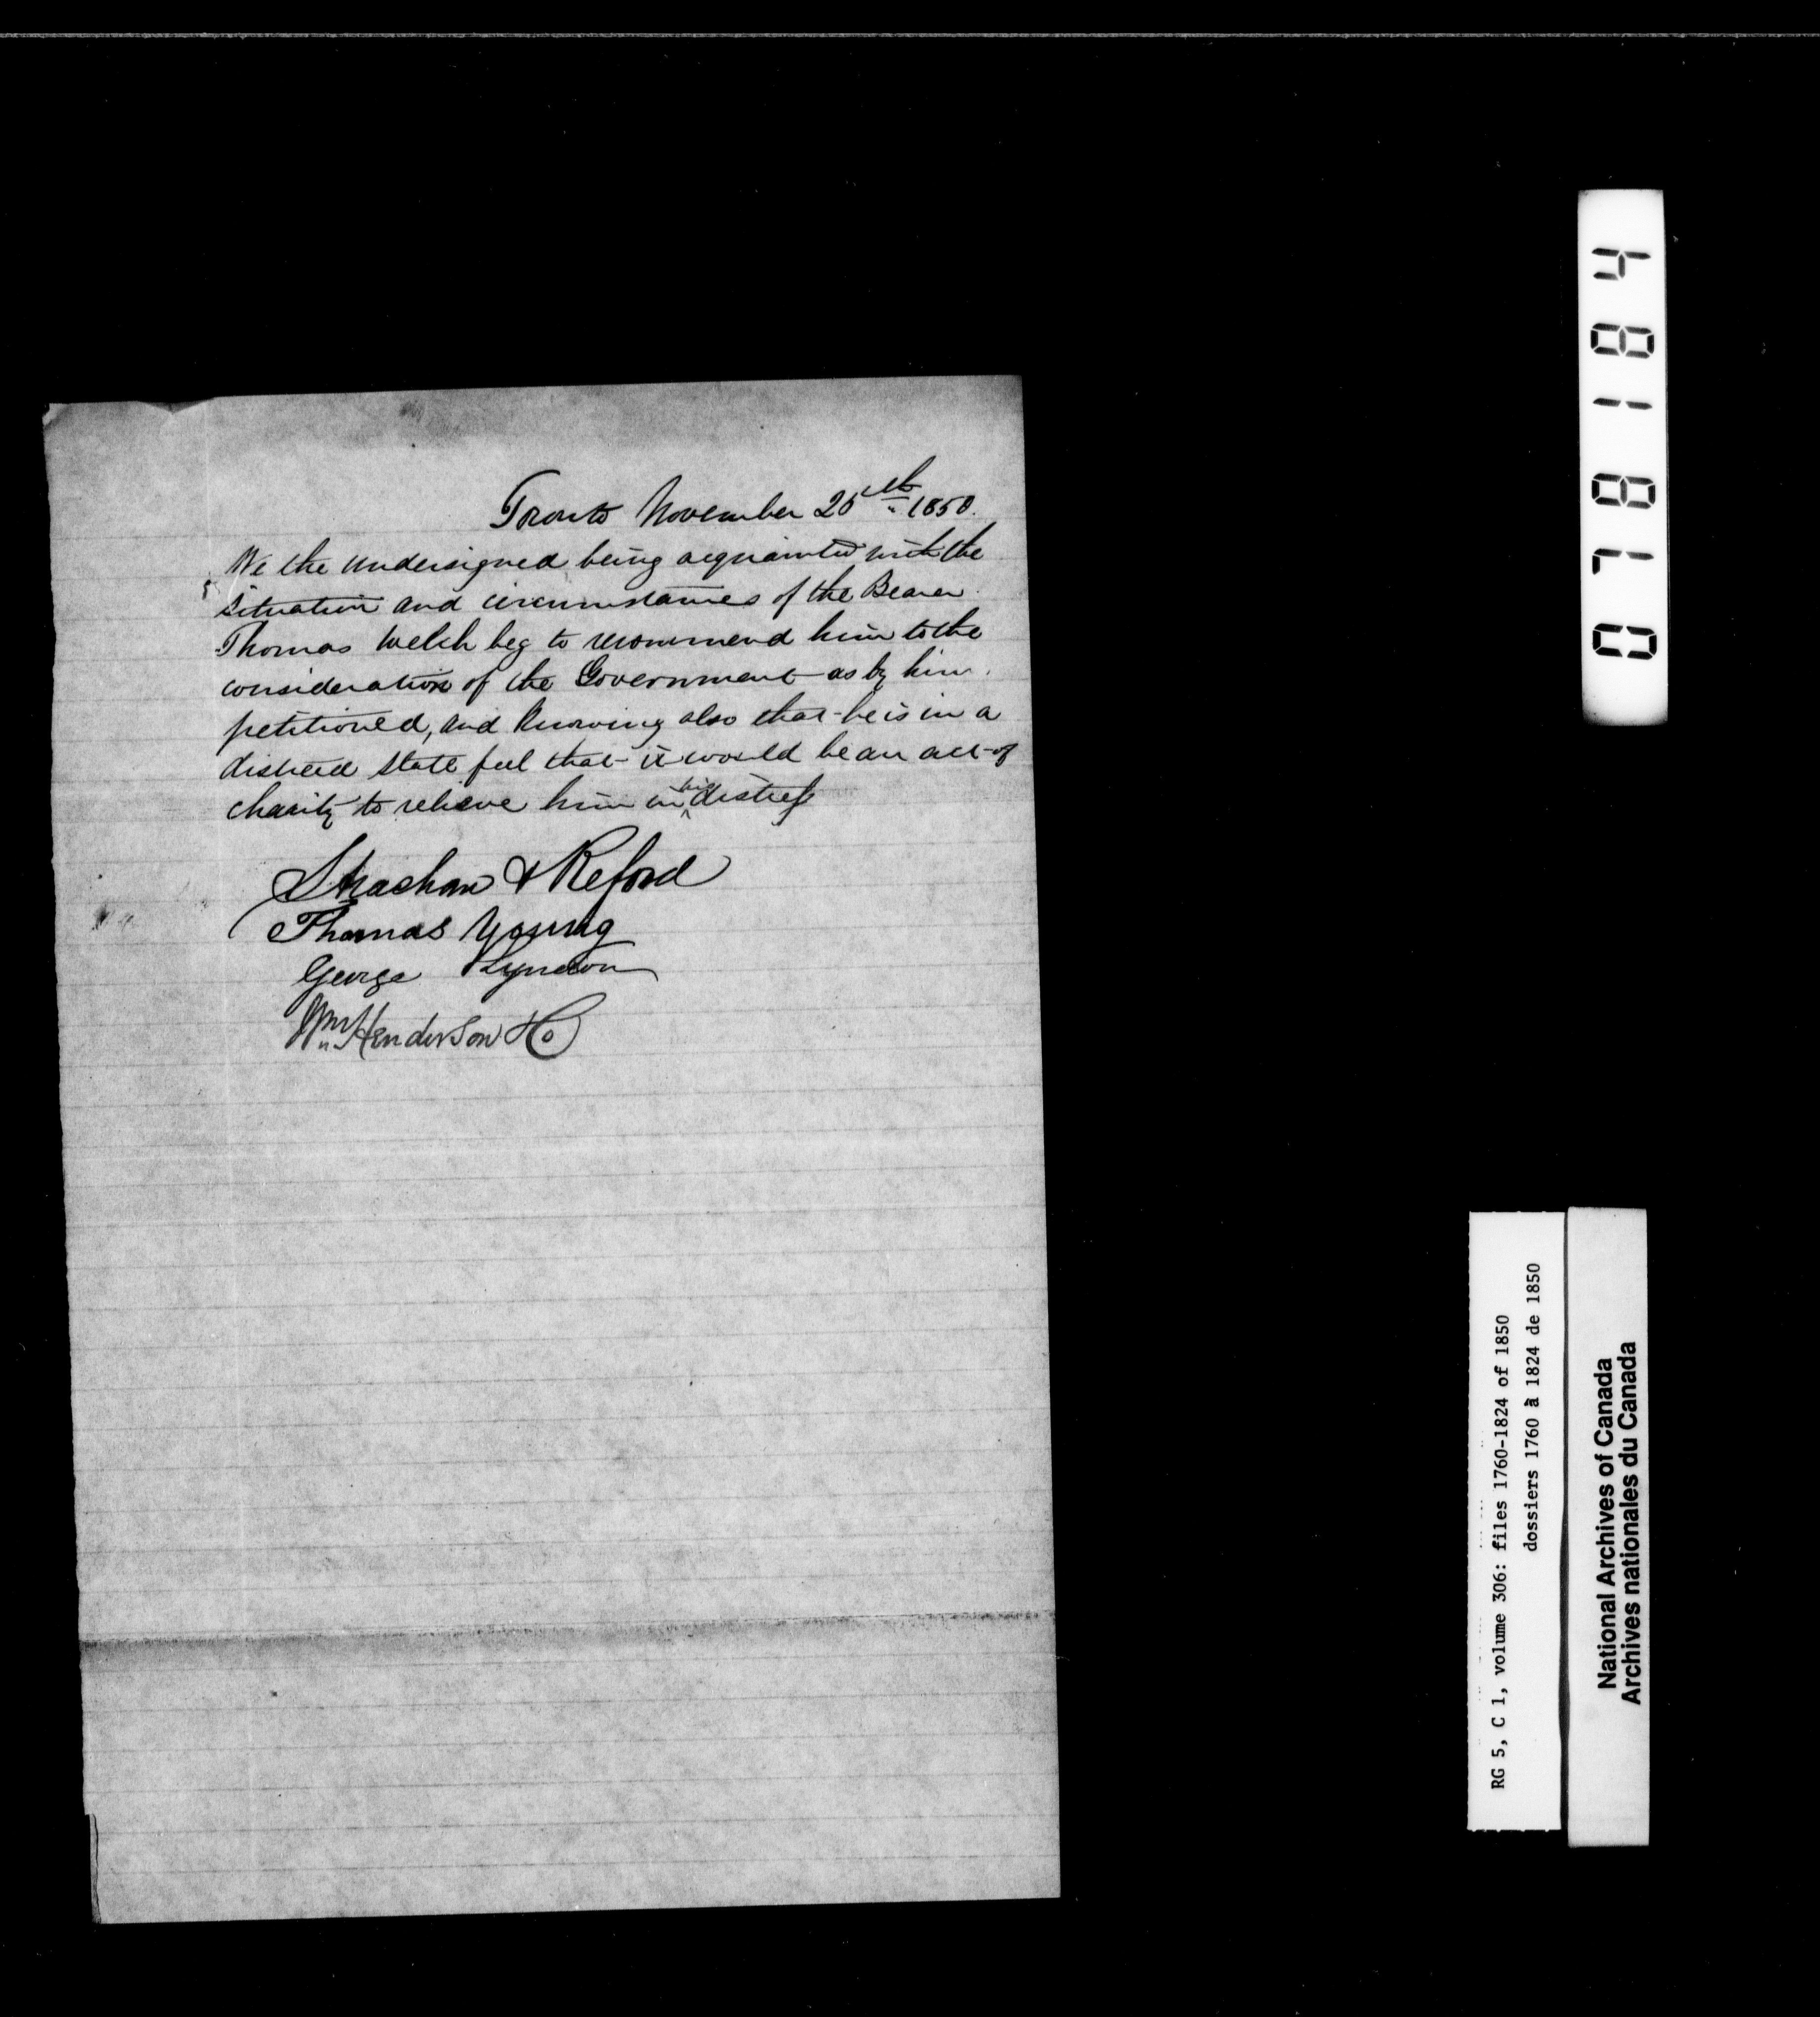 Toronto November 25th 1850.
We the undersigned being acquainted with the
situation and circumstances of the Bearer
Thomas Welch beg to recommend him to the
consideration of the Government as by him
petitioned, and knowing also that he is in a
distressed state feel that it would be an act of
charity to relieve him in his distress
Strachan & Reford
Thomas Young
George
Wm Henderson & Co
078184
RG 5, C 1, volume 306: files 1760-1824 of 1850
dossiers 1760 à 1824 de 1850
National Archives of Canada
Archives nationales du Canada